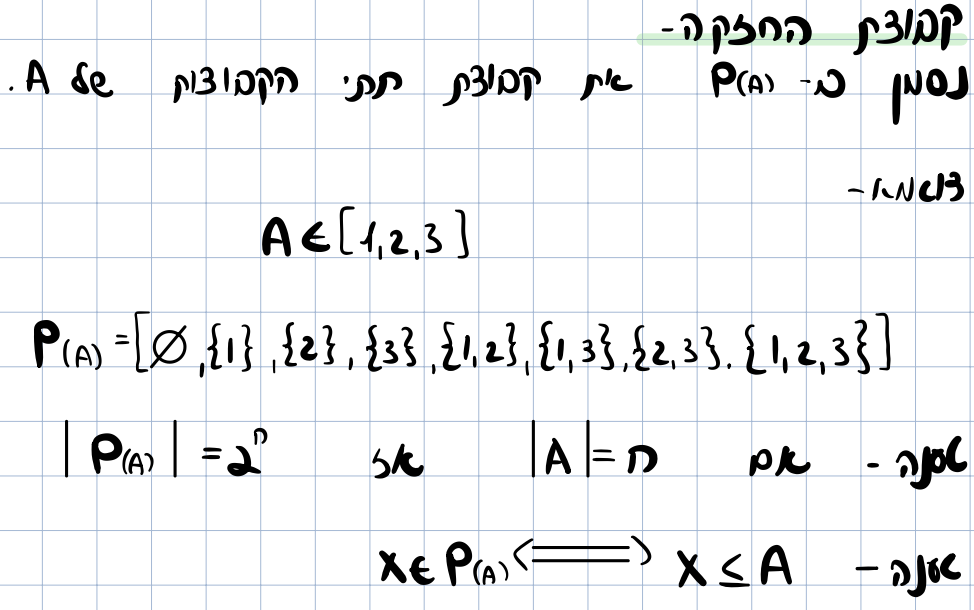 קבוצת החזקה -
נסמן ב- P(A) את קבוצת תתי הקבוצות של A.
דוגמא -
A ∈ [1,2,3]
P(A) = [∅, {1}, {2}, {3}, {1,2}, {1,3}, {2,3}. {1,2,3}]
טענה - אם |A| = n אז |P(A)| = 2ⁿ
טענה - X ≤ A ⟺ X ∈ P(A)